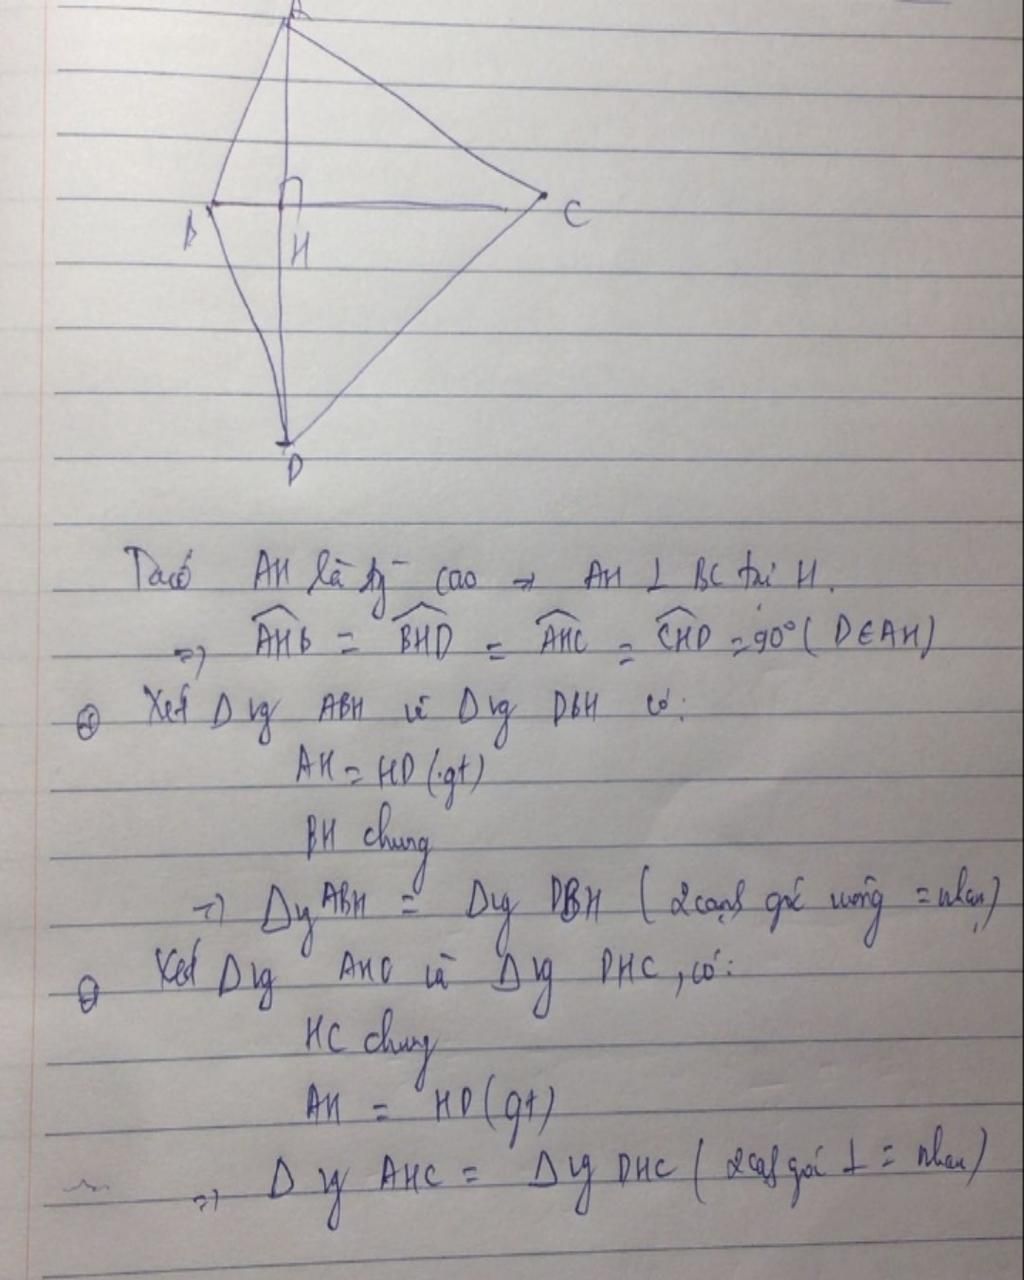 A
B
H
C
D
Ta có AH là đg cao → AH ⊥ BC tại H.
=> AHB = BHD = AHC = CHD = 90° ( D ∈ AH )
Xét Δ vg ABH và Δ vg DBH có:
AH = HD (gt)
BH chung
=> Δ vg ABH = Δ vg DBH ( 2 cạnh góc vuông = nhau )
Xét Δ vg AHC và Δ vg DHC , có:
HC chung
AH = HD (gt)
=> Δ vg AHC = Δ vg DHC ( 2 cạh góc ⊥ = nhau )